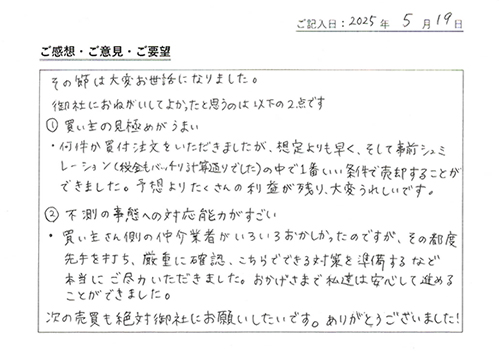 ご記入日：2025年 5月19日
ご感想・ご意見・ご要望
その節は大変お世話になりました。
御社におねがいしてよかったと思うのは以下の2点です
① 買い主の見極めがうまい
・何件か買付注文をいただきましたが、想定よりも早く、そして事前シュミ
レーション(税金もバッチリ計算通りでした)の中で1番いい条件で売却することが
できました。予想よりたくさんの利益が残り、大変うれしいです。
② 不測の事態への対応能力がすごい
・買い主さん側の仲介業者がいろいろおかしかったのですが、その都度
先手を打ち、厳重に確認、こちらでできる対策を準備するなど
本当にご尽力いただきました。おかげさまで私達は安心して進める
ことができました。
次の売買も絶対御社にお願いしたいです。ありがとうございました!